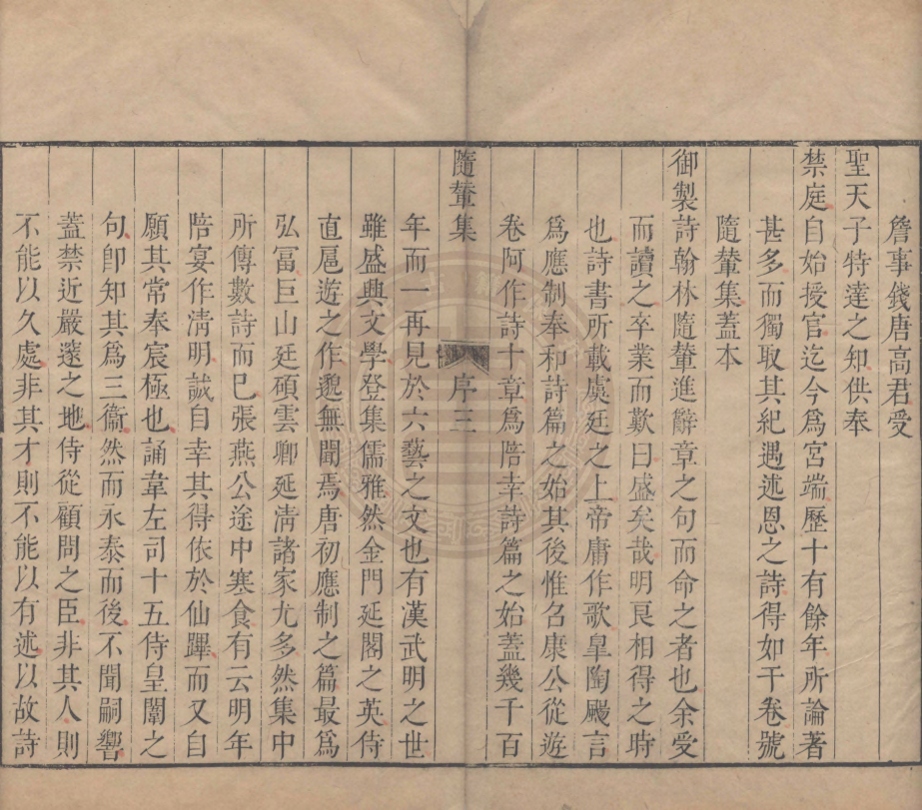 詹事錢唐高君受
聖天子特達之知供奉
禁庭自始授官迄今爲宮端歷十有餘年所論著
甚多而獨取其紀遇述恩之詩得如干卷號
隨輦集蓋本
御製詩翰林隨輦進辭章之句而命之者也余受
而讀之卒業而歎曰盛矣哉明良相得之時
也詩書所載虞廷之上帝庸作歌臯陶颺言
爲應制奉和詩篇之始其後惟召康公從遊
卷阿作詩十章爲陪幸詩篇之始蓋幾千百
隨輦集
序三
年而一再見於六藝之文也有漢武明之世
雖盛典文學登集儒雅然金門延閣之英侍
直扈遊之作邈無聞焉唐初應制之篇最爲
弘冨巨山廷碩雲卿延淸諸家尤多然集中
所傳數詩而已張燕公途中寒食有云明年
陪宴作淸明誠自幸其得依於仙蹕而又自
願其常奉宸極也誦韋左司十五侍皇闈之
句卽知其爲三衞然而永泰而後不聞嗣響
蓋禁近嚴邃之地侍從顧問之臣非其人則
不能以久處非其才則不能以有述以故詩